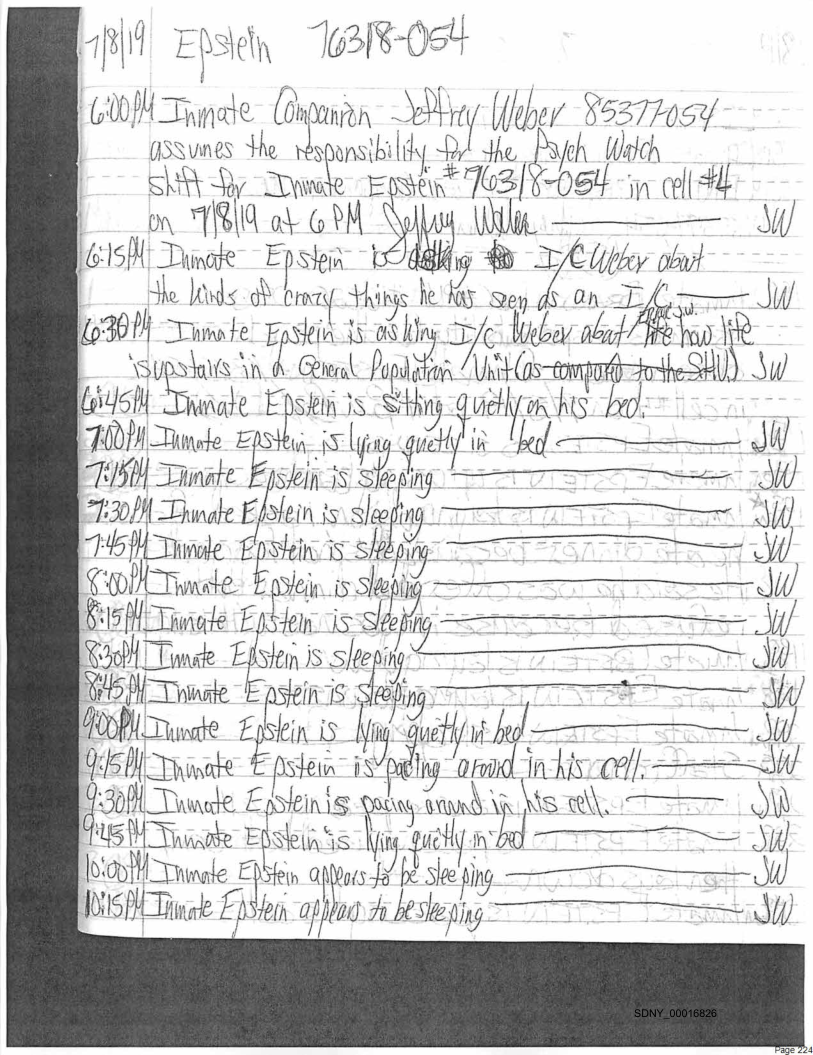 7/8/19 Epstein 76318-054
6:00PM Inmate Companion Jeffrey Weber 85377-054
assumes the responsibility for the Psych Watch
shift for Inmate Epstein #76318-054 in cell #4
on 7/8/19 at 6 PM Jeffrey Weber JW
6:15PM Inmate Epstein is asking I/C Weber about
the kinds of crazy things he has seen as an I/C JW
6:30PM Inmate Epstein is asking I/C Weber about life how life
is upstairs in a General Population Unit (as compared to the SHU.) JW
6:45PM Inmate Epstein is sitting quetly on his bed.
7:00PM Inmate Epstein is lying quetly in bed JW
7:15PM Inmate Epstein is sleeping JW
7:30PM Inmate Epstein is sleeping JW
7:45PM Inmate Epstein is sleeping JW
8:00PM Inmate Epstein is sleeping JW
8:15PM Inmate Epstein is sleeping JW
8:30PM Inmate Epstein is sleeping JW
8:45PM Inmate Epstein is sleeping JW
9:00PM Inmate Epstein is lying quetly in bed JW
9:15PM Inmate Epstein is pacing around in his cell. JW
9:30PM Inmate Epstein is pacing around in his cell. JW
9:45PM Inmate Epstein is lying quetly in bed JW
10:00PM Inmate Epstein appears to be sleeping JW
10:15PM Inmate Epstein appears to be sleeping JW
SDNY_00016826
Page 224